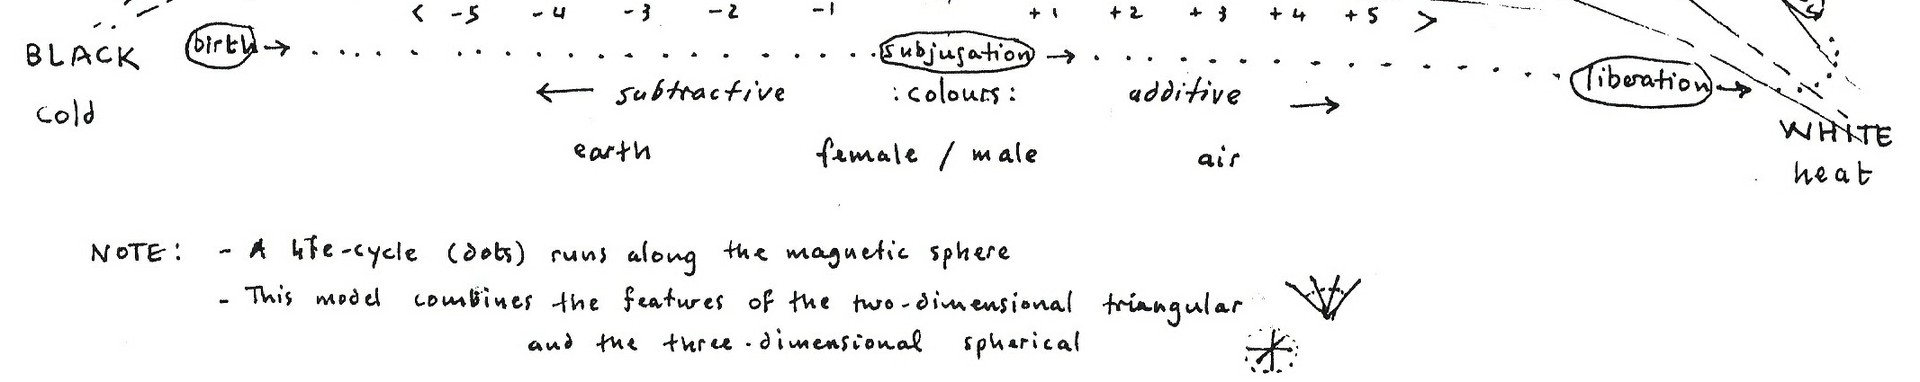 < -5 -4 -3 -2 -1 +1 +2 +3 +4 +5 >
BLACK birth → subjugation → liberation →
cold ← subtractive :colours: additive →
WHITE
earth female / male air
heat
NOTE: - A life-cycle (dots) runs along the magnetic sphere
- This model combines the features of the two-dimensional triangular
and the three-dimensional spherical